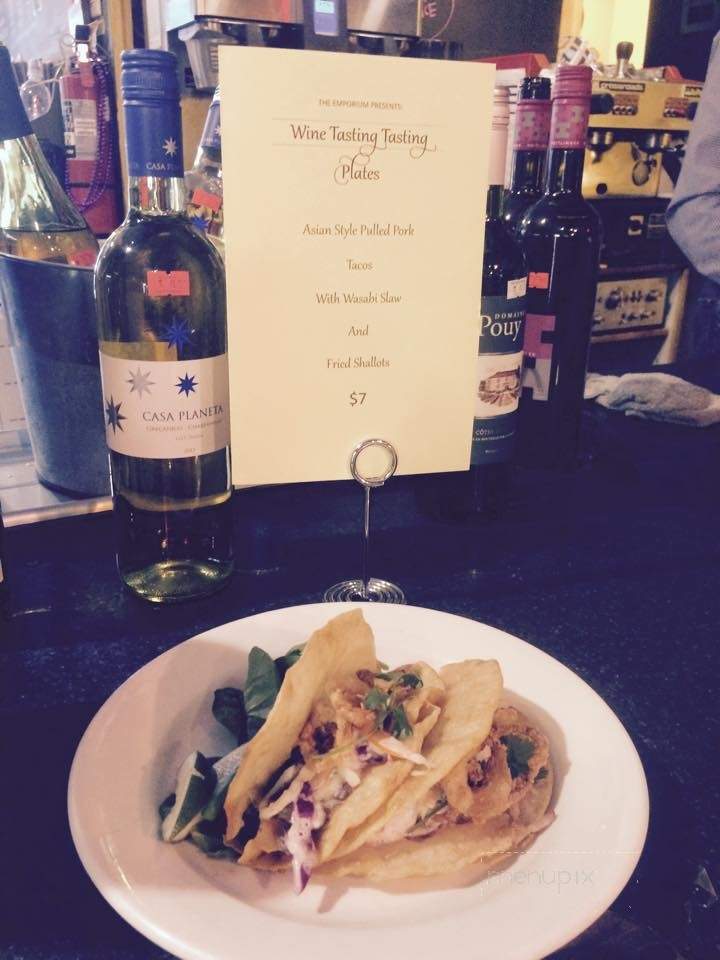 THE EMPORIUM PRESENTS:
Wine Tasting Tasting
Plates
Asian Style Pulled Pork
Tacos
With Wasabi Slaw
And
Fried Shallots
$7
CASA
CASA PLANETA
DOMAINE
Pouy
crossroads
menupix